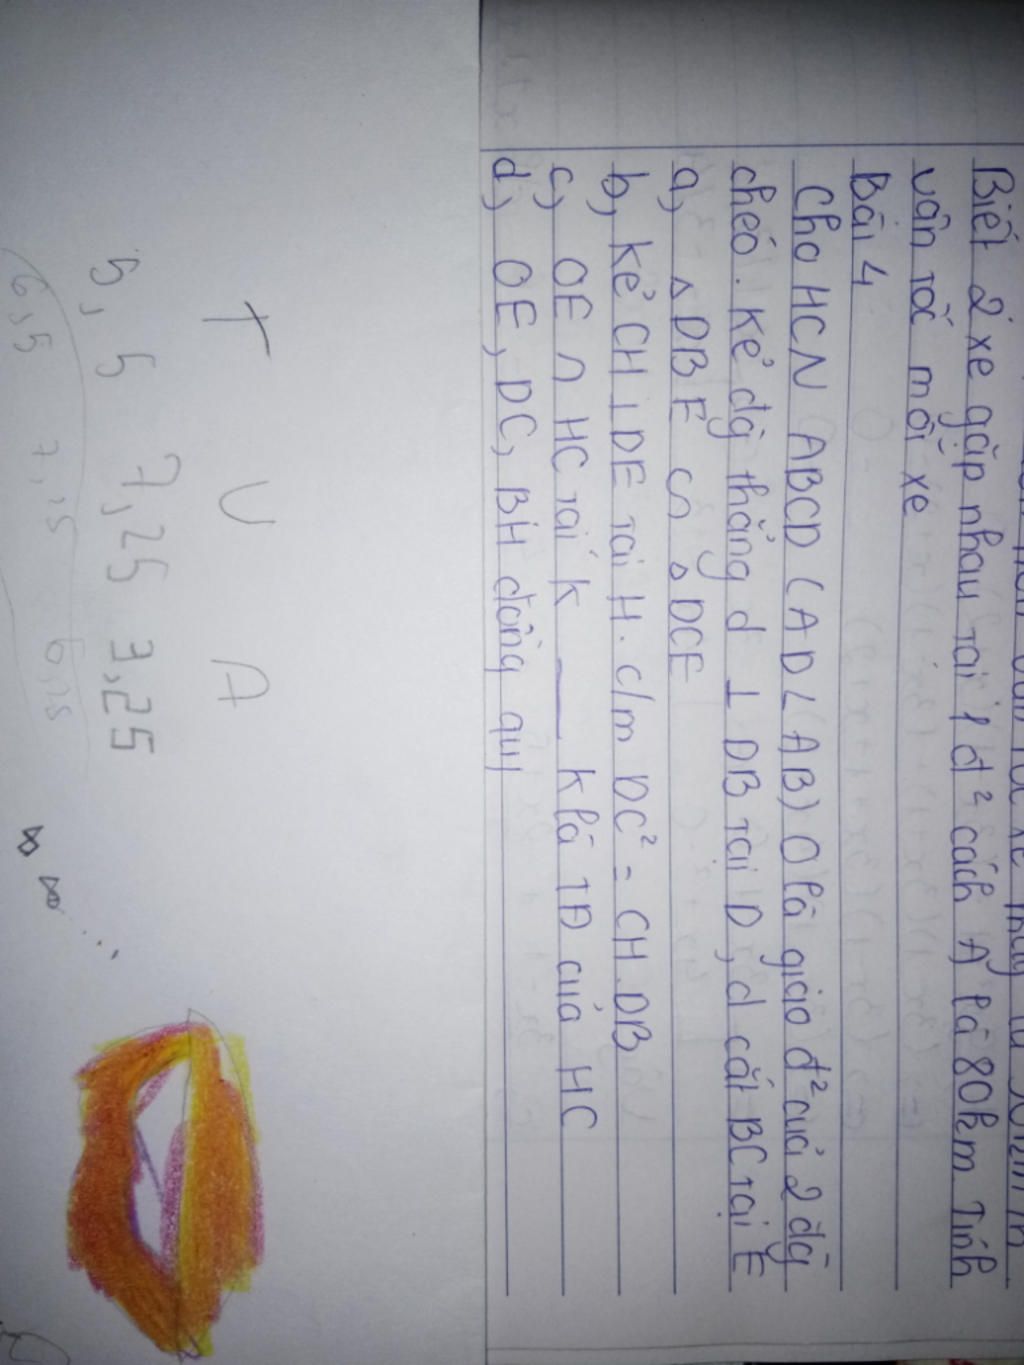 Biết 2 xe gặp nhau tại 1 đ² cách A là 80km Tính
vận tốc mỗi xe
Bài 4
Cho HCN ABCD (AD < AB) O là giao đ² của 2 đg
chéo. Kẻ đg thẳng d ⊥ DB tại D, d cắt BC tại E
a, △DBE ∽ △DCE
b, Kẻ CH ⊥ DE tại H. c/m DC² = CH.DB
c, OE ∩ HC tại K ___ K là TĐ của HC
d, OE, DC, BH đồng quy
T U A
5,5 7,25 3,25
6,5 7,25 6,25